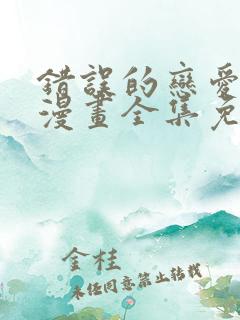 錯誤的戀愛
漫畫全集免
金桂
未任同意禁止转载